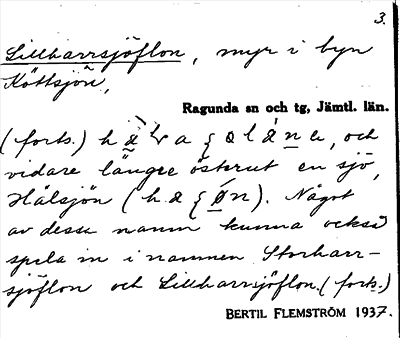 3.
Lillharrsjöflon, myr i byn
Köttsjön,
Ragunda sn och tg, Jämtl. län.
(forts.) och
vidare längre österut en sjö,
Hälsjön Något
av dessa namn kunna också
spela in i namnen Storharr-
sjöflon och Lillharrsjöflon. (forts.)
BERTIL FLEMSTRÖM 1937.